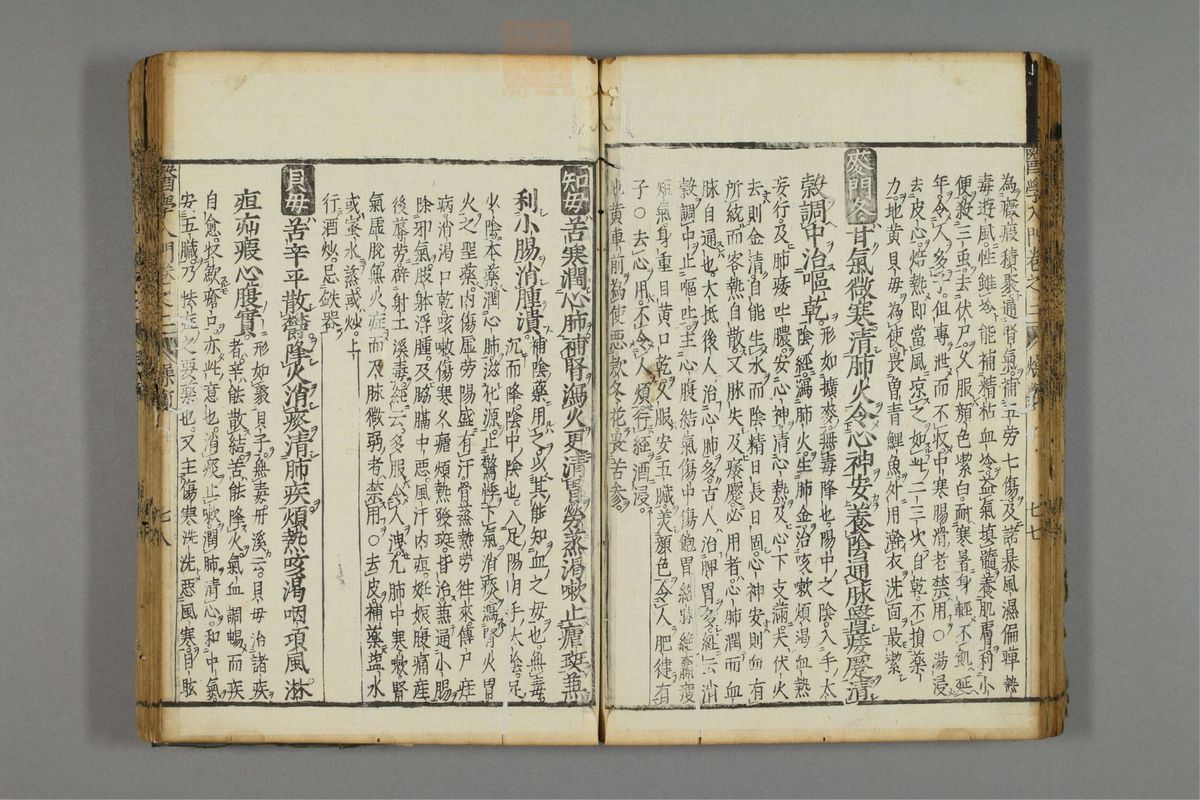 為癥瘕積聚通腎氣補五勞七傷及諸暴風濕偏痺熱
毒遊風性雖冷能補精枯血冷益氣填髓養肌膚利小
便殺三虫去伏尸久服顏色潔白耐寒暑身輕不飢延
年令人多子但專泄而不收中寒腸滑老禁用○湯浸
去皮心焙熱即當風凉之如此二三次自乾不損藥
力地黃貝毋為使畏曽青鯉魚外用澣衣洗面最潔
麥門冬甘氣微寒清肺火令心神安養陰通脉醫痿蹷清
穀調中治嘔乾形如穬麥無毒降也陽中之陰入手太
陰經瀉肺火生肺金治咳嗽煩渴血熱
妄行及肺痿吐膿安心神清心熱及心下支滿夫伏火
去則金清自能生水而陰精日長日固心神安則血有
所統而客熱自散又脉失及痿蹷必用者心肺潤而血
脉自通也大抵後人治心肺多古人治脾胃多經云消
穀調中止嘔吐主心腹結氣傷中傷飽胃絡脉絕羸瘦
短氣身重目黃口乾久服安五臟美顏色令人肥健有
子○去心用不令人煩行經酒浸
地黃車前為使惡款冬花畏苦參
知毋苦寒潤心肺補腎瀉火更清胃勞蒸渴嗽止瘧斑兼
利小腸消腫潰補陰藥用之以其能知血之毋也無毒
沉而降陰中陰也入足陽明手太陰足
少陰本藥潤心肺滋化源止驚悸下氣消痰瀉腎火胃
火之聖藥內傷虛勞陽盛有汗骨蒸熱勞往來傳尸疰
病消渴口乾咳嗽傷寒久瘧煩熱發斑皆治兼通小腸
除邪氣肢躰浮腫及脇膈中惡風汗內疸妊娠腹痛產
後蓐勞辟射工溪毒經云多服令人洩凢肺中寒嗽腎
氣虛脫無火症而尺脉微弱者禁用○去皮補藥盐水
或蜜水蒸或炒上
行酒炒忌鉄器
貝毋苦辛平散欝降火消痰清肺疾煩熱咳渴咽項風淋
疸疝瘕心腹實形如聚貝子無毒丹溪云貝毋治諸疾
者辛能散結苦能降火氣血調暢而疾
自愈故歛瘡口亦此意也消痰止嗽潤肺清心和中氣
安五臟乃怯症之要藥也又主傷寒洗洗惡風寒目眩
醫學入門卷之二
七七
醫學入門卷之二
七八